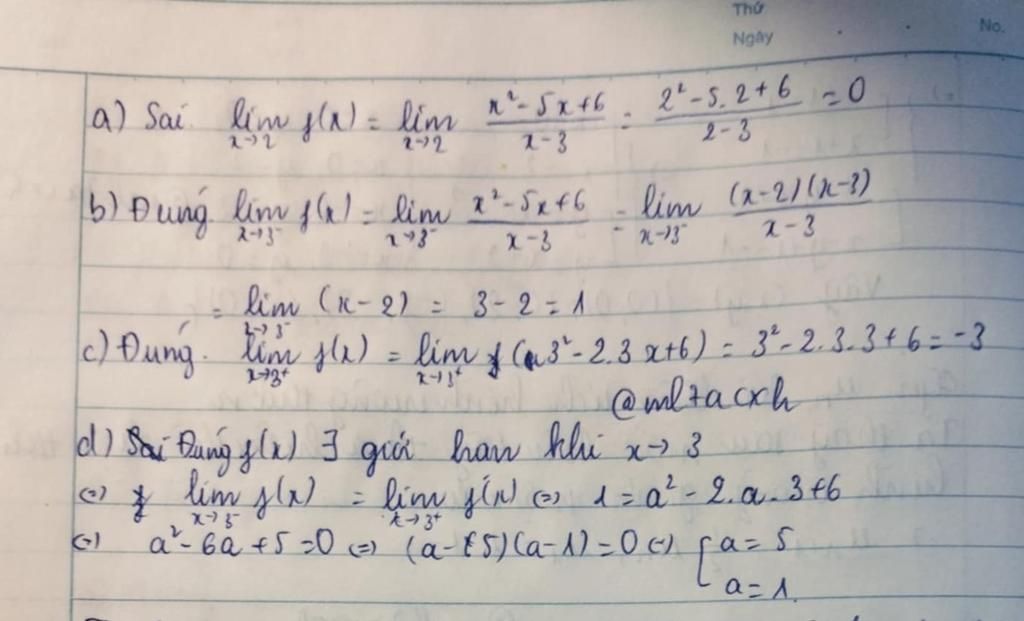 Thứ
Ngày
No.
a) Sai lim x→2 f(x) = lim x→2 (x² - 5x + 6)/(x - 3) = (2² - 5.2 + 6)/(2 - 3) = 0
b) Đúng lim x→3⁻ f(x) = lim x→3⁻ (x² - 5x + 6)/(x - 3) = lim x→3⁻ (x - 2)(x - 3)/(x - 3)
= lim x→3⁻ (x - 2) = 3 - 2 = 1
c) Đúng. lim x→3⁺ f(x) = lim x→3⁺ (3² - 2.3x + 6) = 3² - 2.3.3 + 6 = -3
@ml7acxh
d) Đúng f(x) ∃ giới hạn khi x → 3
⇔ lim x→3⁻ f(x) = lim x→3⁺ f(x) ⇔ 1 = a² - 2.a.3 + 6
⇔ a² - 6a + 5 = 0 ⇔ (a - 5)(a - 1) = 0 ⇔ [ a = 5
a = 1.